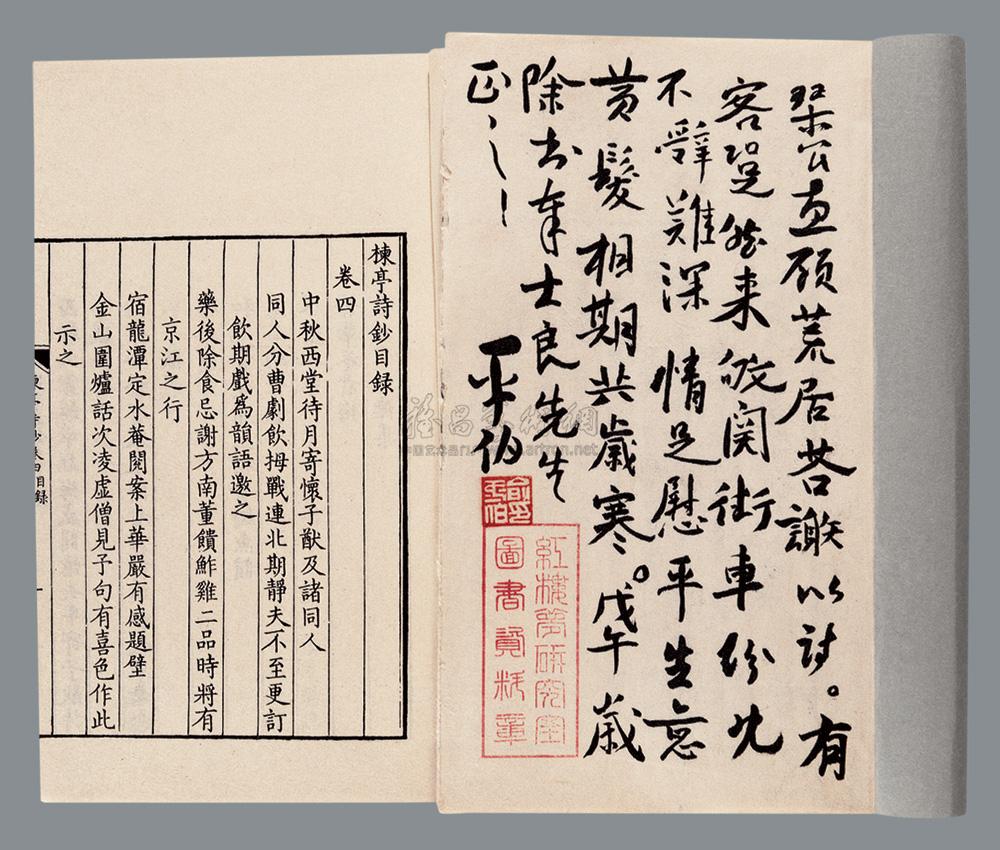 琹公惠顾荒居荅謝以詩。有
客跫然来敂関街車纷冗
不辤難深情足慰平生意
黄髮相期共歲寒。戊午歲
除书奉士良先生
正之
平伯
俞平伯印
紅樓夢研究室
圖書資料章
楝亭詩鈔目録
卷四
中秋西堂待月寄懷子猷及諸同人
同人分曹劇飲拇戰連北期靜夫不至更訂
飲期戲爲韻語邀之
藥後除食忌謝方南董饋鮓雞二品時將有
京江之行
宿龍潭定水菴閱案上華嚴有感題壁
金山圍爐話次凌虛僧見予句有喜色作此
示之